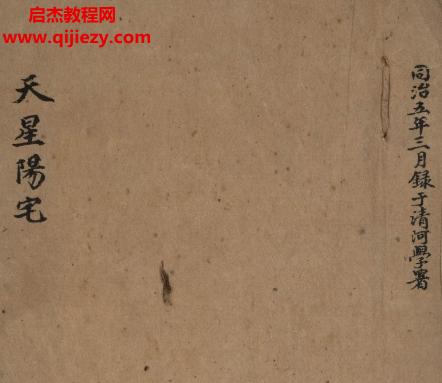 启杰教程网
www.qijiezy.com
同治五年三月録于清河學署
天星陽宅